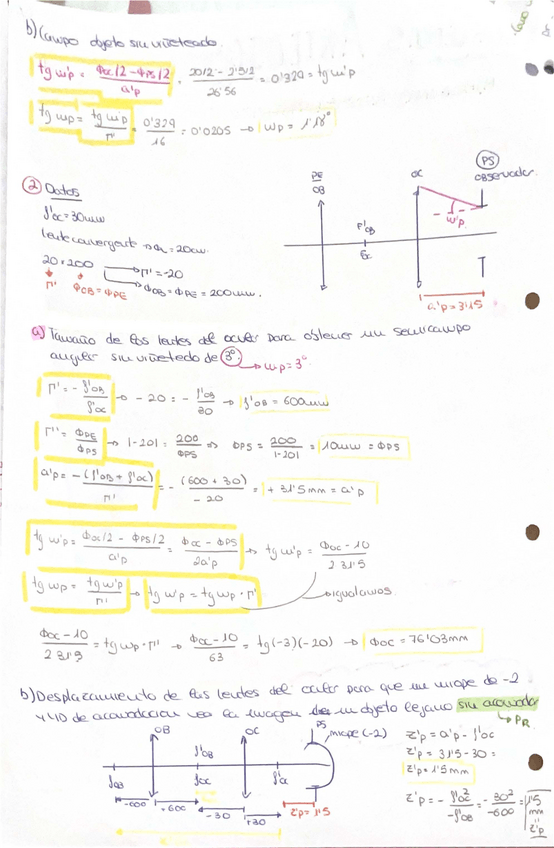 b) Campo objeto sin viñeteado.
tg w'p = Φoc/2 - ΦPS/2 / a'p = 20/2 - 2'5/2 / 26'56 = 0'329 = tg w'p
tg wp = tg w'p / Γ' = 0'329 / 16 = 0'0205 → wp = 1'18°
② Datos
f'oc = 30mm
lente convergente → = 20cm.
20×200 → Γ' = -20
Γ' ΦOB = ΦPE → ΦOB = ΦPE = 200mm.
PE
OB
F'OB
Foc
OC
PS
observador
w'p
a'p = 31'5
a) Tamaño de las lentes del ocular para obtener un semicampo
angular sin viñeteado de 3° → wp = 3°
Γ' = - f'OB / f'oc → -20 = - f'OB / 30 → f'OB = 600mm
Γ' = ΦPE / ΦPS → |-20| = 200 / ΦPS ⇒ ΦPS = 200 / |-20| = 10mm = ΦPS
a'p = -(f'OB + f'oc) / Γ' = - (600 + 30) / -20 = + 31'5 mm = a'p
tg w'p = Φoc/2 - ΦPS/2 / a'p = Φoc - ΦPS / 2a'p → tg w'p = Φoc - 10 / 2 31'5
tg wp = tg w'p / Γ' → tg w'p = tg wp · Γ' → igualamos
Φoc - 10 / 2 31'5 = tg wp · Γ' → Φoc - 10 / 63 = tg(-3)(-20) → Φoc = 76'03mm
b) Desplazamiento de las lentes del ocular para que un miope de -2
y 4D de acomodación vea la imagen de un objeto lejano sin acomodar
→ PR
OB
OC
PS
miope (-2)
f'OB
fOB
foc
f'oc
-600
+600
-30
+30
z'p = 1'5
z'p = a'p - f'oc
z'p = 31'5 - 30 =
z'p = 1'5 mm
z'p = - f'oc² / -f'OB = - 30² / -600 = 1'5 mm z'p